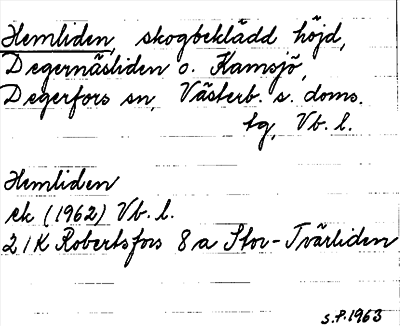 Hemliden, skogbeklädd höjd,
Degernäsliden o. Kamsjö,
Degerfors sn, Västerb. s. doms.
tg, Vb. l.
Hemliden
ek (1962) Vb. l.
21K Robertsfors 8a Stor-Tvärliden
S.P. 1963